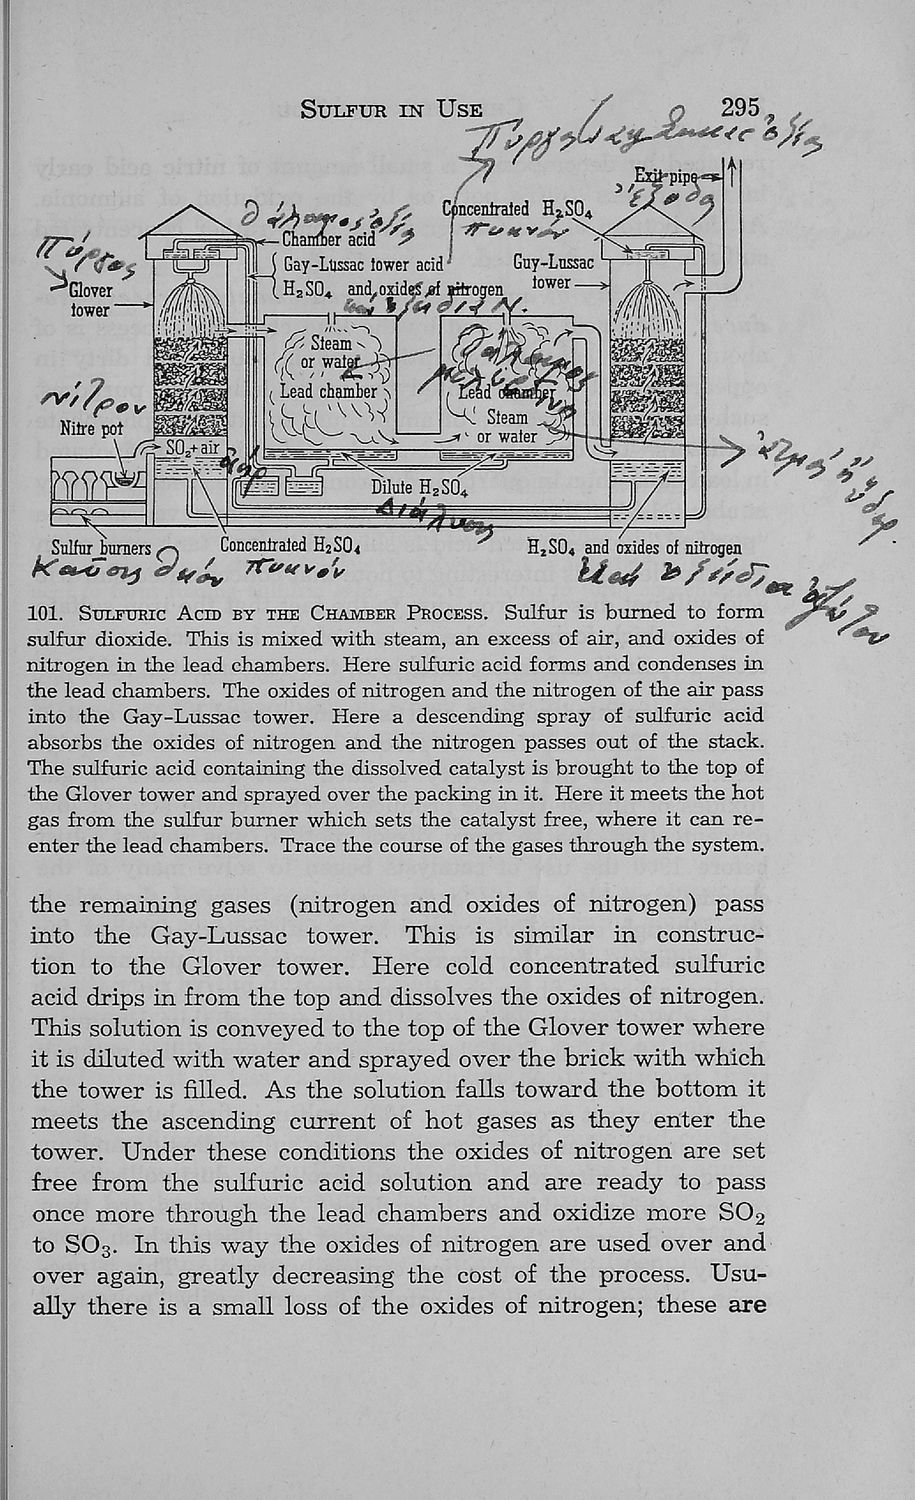 SULFUR IN USE 295
Exit pipe
Έξοδος
Concentrated H₂SO₄
πυκνόν
Chamber acid
Πύργος
Gay-Lussac tower acid
H₂SO₄ and oxides of nitrogen
Guy-Lussac
tower
Glover
tower
Steam
or water
Lead chamber
Lead chamber
Steam
or water
νίτρον
Nitre pot
SO₂+air
ἀήρ
Dilute H₂SO₄
Διάλυσις
Sulfur burners
Concentrated H₂SO₄
πυκνόν
H₂SO₄ and oxides of nitrogen
101. SULFURIC ACID BY THE CHAMBER PROCESS. Sulfur is burned to form
sulfur dioxide. This is mixed with steam, an excess of air, and oxides of
nitrogen in the lead chambers. Here sulfuric acid forms and condenses in
the lead chambers. The oxides of nitrogen and the nitrogen of the air pass
into the Gay-Lussac tower. Here a descending spray of sulfuric acid
absorbs the oxides of nitrogen and the nitrogen passes out of the stack.
The sulfuric acid containing the dissolved catalyst is brought to the top of
the Glover tower and sprayed over the packing in it. Here it meets the hot
gas from the sulfur burner which sets the catalyst free, where it can re-
enter the lead chambers. Trace the course of the gases through the system.
the remaining gases (nitrogen and oxides of nitrogen) pass
into the Gay-Lussac tower. This is similar in construc-
tion to the Glover tower. Here cold concentrated sulfuric
acid drips in from the top and dissolves the oxides of nitrogen.
This solution is conveyed to the top of the Glover tower where
it is diluted with water and sprayed over the brick with which
the tower is filled. As the solution falls toward the bottom it
meets the ascending current of hot gases as they enter the
tower. Under these conditions the oxides of nitrogen are set
free from the sulfuric acid solution and are ready to pass
once more through the lead chambers and oxidize more SO₂
to SO₃. In this way the oxides of nitrogen are used over and
over again, greatly decreasing the cost of the process. Usu-
ally there is a small loss of the oxides of nitrogen; these are